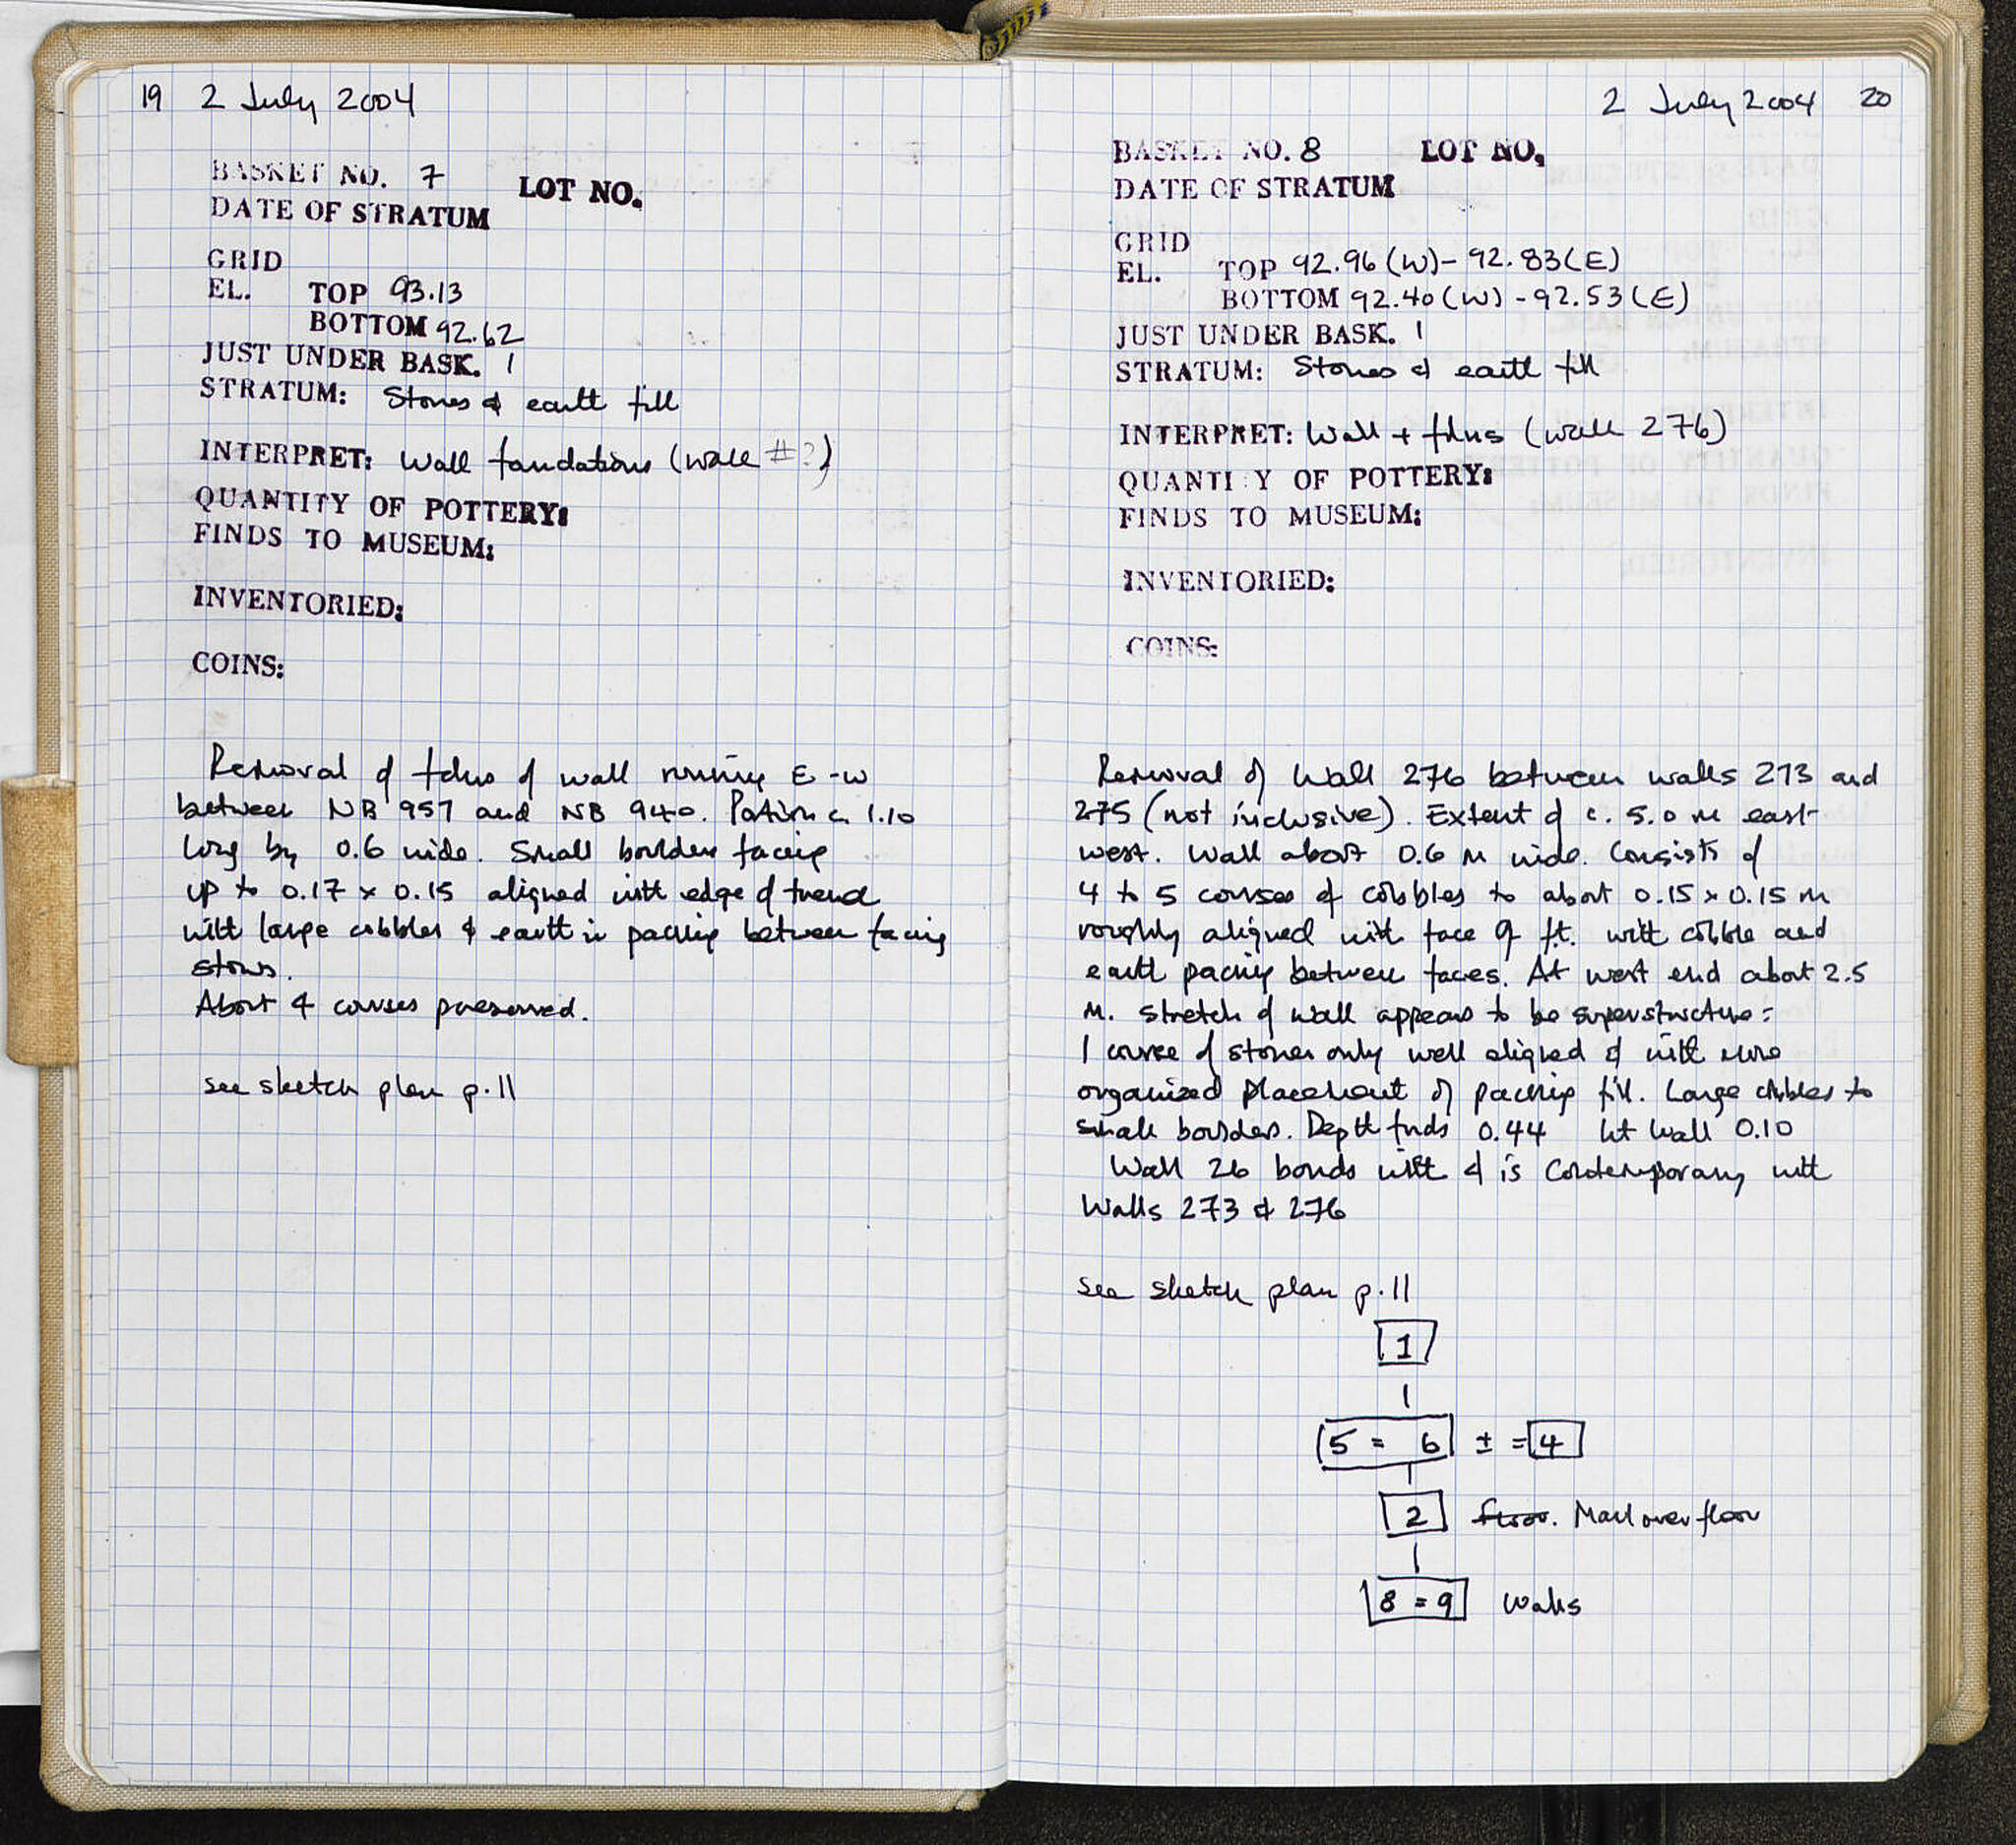 19 2 July 2004
BASKET NO. 7 LOT NO.
DATE OF STRATUM
GRID
EL. TOP 93.13
BOTTOM 92.62
JUST UNDER BASK. 1
STRATUM: Stones & earth fill
INTERPRET: Wall foundations (wall #?)
QUANTITY OF POTTERY:
FINDS TO MUSEUM:
INVENTORIED:
COINS:
Removal of fdns of wall running E-W
between NB 957 and NB 940. Portion c. 1.10
long by 0.6 wide. Small boulders facing
up to 0.17 x 0.15 aligned with edge of trench
with large cobbles & earth in packing between facing
stones.
About 4 courses preserved.
see sketch plan p.11
2 July 2004 20
BASKET NO. 8 LOT NO.
DATE OF STRATUM
GRID
EL. TOP 92.96 (W) - 92.83 (E)
BOTTOM 92.40 (W) - 92.53 (E)
JUST UNDER BASK. 1
STRATUM: Stones & earth fill
INTERPRET: Wall + fdns (wall 276)
QUANTI Y OF POTTERY:
FINDS TO MUSEUM:
INVENTORIED:
COINS:
Removal of Wall 276 between walls 273 and
275 (not inclusive). Extent of c. 5.0 m east-
west. Wall about 0.6 m wide. Consists of
4 to 5 courses of cobbles to about 0.15 x 0.15 m
roughly aligned with face of ft. with cobble and
earth packing between faces. At west end about 2.5
m. stretch of wall appears to be superstructure:
1 course of stones only well aligned & with more
organized placement of packing fill. Large cobbles to
small boulders. Depth fnds 0.44 ht wall 0.10
Wall 26 bonds with & is contemporary with
Walls 273 & 276
see sketch plan p.11
1
5 = 6 ± = 4
2 floor. Marl over floor
8 = 9 walls